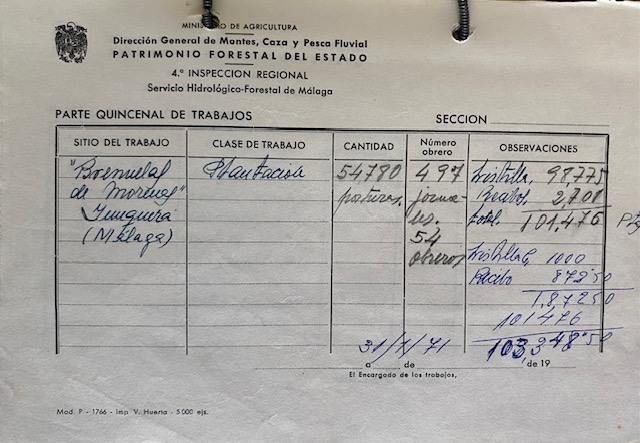 MINISTERIO DE AGRICULTURA
Dirección General de Montes, Caza y Pesca Fluvial
PATRIMONIO FORESTAL DEL ESTADO
4.ª INSPECCION REGIONAL
Servicio Hidrológico-Forestal de Málaga
PARTE QUINCENAL DE TRABAJOS SECCION
SITIO DEL TRABAJO CLASE DE TRABAJO CANTIDAD Número obrero OBSERVACIONES
de Morenas" Plantación 54780 497 98,775
Yunquera posturas, jorna- Recibos, 2,701
(Málaga) les. total. 101,476
54
obreros 1000
Recibo 872'50
1,872'50
101476
31/1/71 103,348'50
a de de 19
El Encargado de los trabajos,
Mod. P - 1766 - Imp V. Huerta - 5000 ejs.